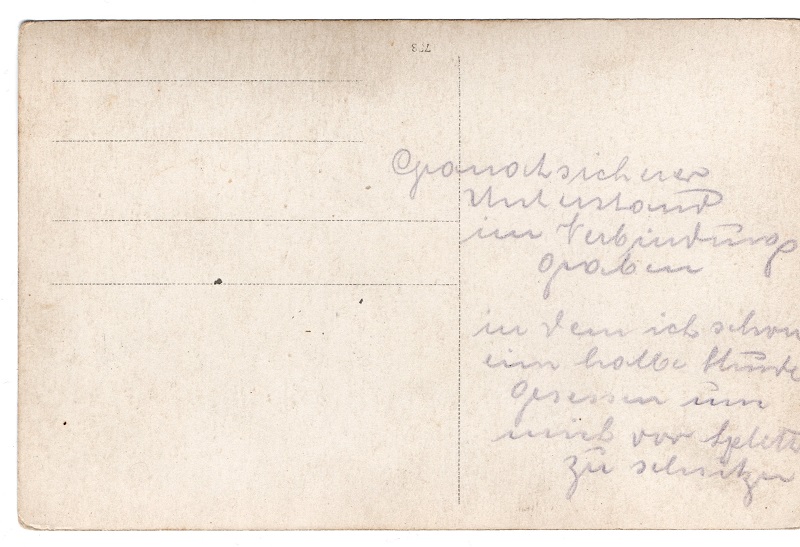 703
Granatsicherer
Unterstand
im Verbindung
graben
in dem ich schon
eine halbe Stunde
gesessen um
mich vor Splitt
zu schützen